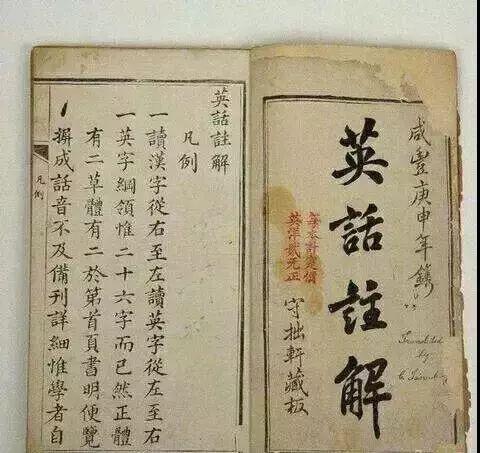 咸豐庚申年鐫
英話註解
每本計價
英洋貳元正
守拙軒藏板
Translated
by
英話註解
凡例
一讀漢字從右至左讀英字從左至右
一英字綱領惟二十六字而已然正體
有二草體有二於第首頁書明便覽
撰成話音不及備刊詳細惟學者自
凡例